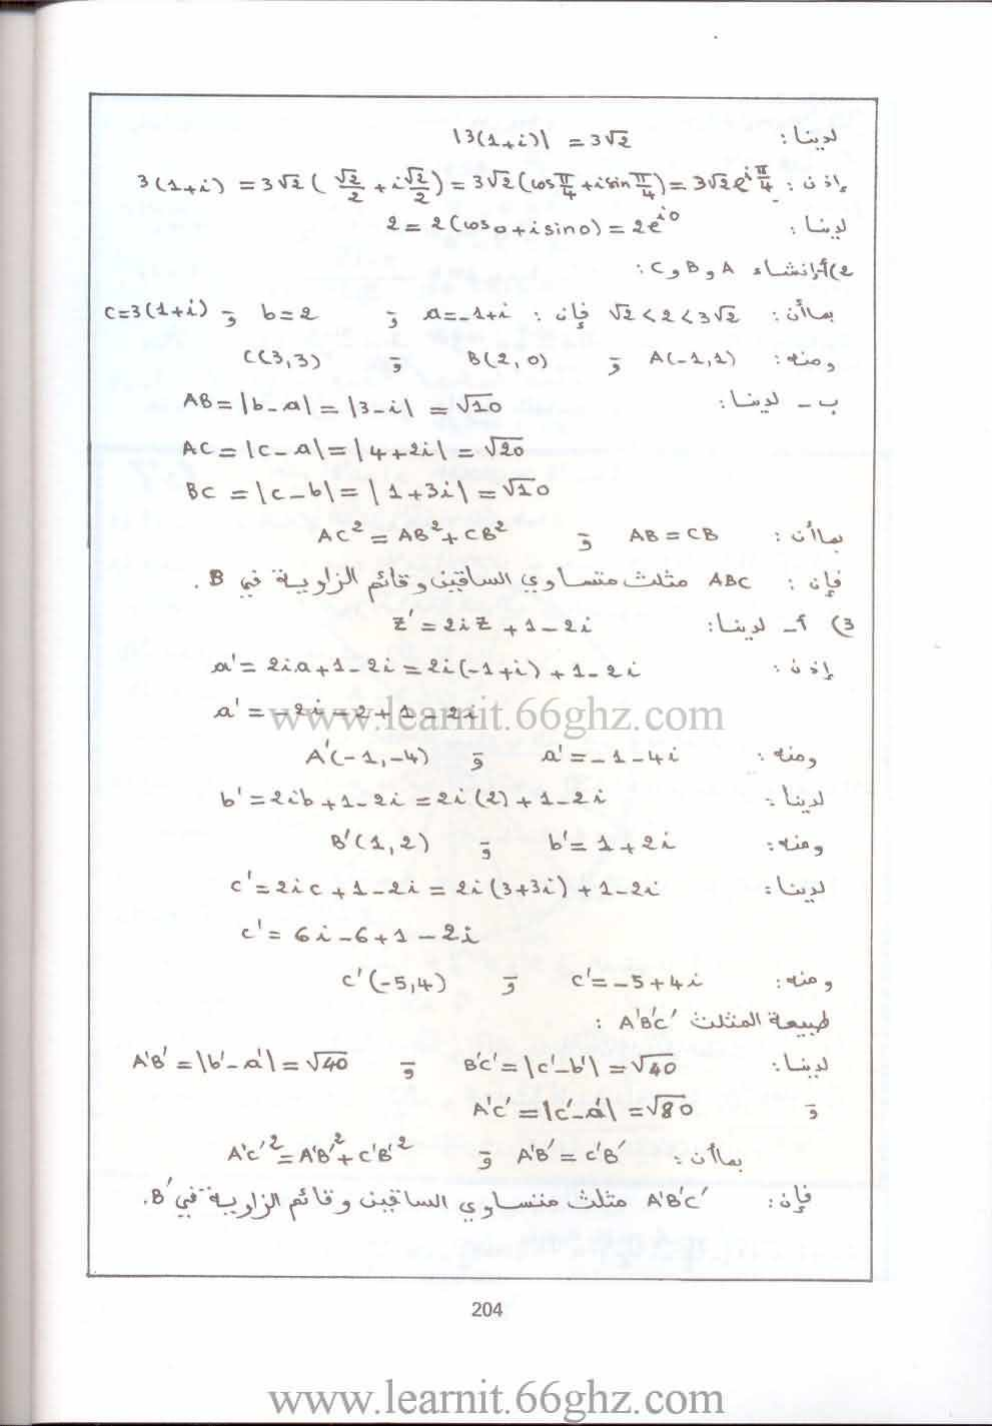 لدينا : |3(1+i)| = 3√2
إذن : 3(1+i) = 3√2 ( √2/2 + i√2/2 ) = 3√2 (cos π/4 + i sin π/4) = 3√2 e^{iπ/4}
لدينا : 2 = 2(cos 0 + i sin 0) = 2e^{i0}
2) أ- إنشاء A و B و C :
بما أن : √2 < 2 < 3√2 فإن : a = -1+i و b = 2 و c = 3(1+i)
ومنه : A(-1,1) و B(2,0) و C(3,3)
ب - لدينا : AB = |b-a| = |3-i| = √10
AC = |c-a| = |4+2i| = √20
BC = |c-b| = |1+3i| = √10
بما أن : AB = CB و AC² = AB² + CB²
فإن : ABC مثلث متساوي الساقين وقائم الزاوية في B .
3) أ - لدينا : z' = 2iz + 1 - 2i
إذن : a' = 2ia + 1 - 2i = 2i(-1+i) + 1 - 2i
a' = -2i - 2 + 1 - 2i
www.learnit.66ghz.com
ومنه : a' = -1 - 4i و A'(-1,-4)
لدينا : b' = 2ib + 1 - 2i = 2i(2) + 1 - 2i
ومنه : b' = 1 + 2i و B'(1,2)
لدينا : c' = 2ic + 1 - 2i = 2i(3+3i) + 1 - 2i
c' = 6i - 6 + 1 - 2i
ومنه : c' = -5 + 4i و c'(-5,4)
طبيعة المثلث A'B'C' :
لدينا : B'C' = |c'-b'| = √40 و A'B' = |b'-a'| = √40
و A'C' = |c'-a'| = √80
بما أن : A'B' = C'B' و A'C'² = A'B'² + C'B'²
فإن : A'B'C' مثلث متساوي الساقين وقائم الزاوية في B'.
204
www.learnit.66ghz.com